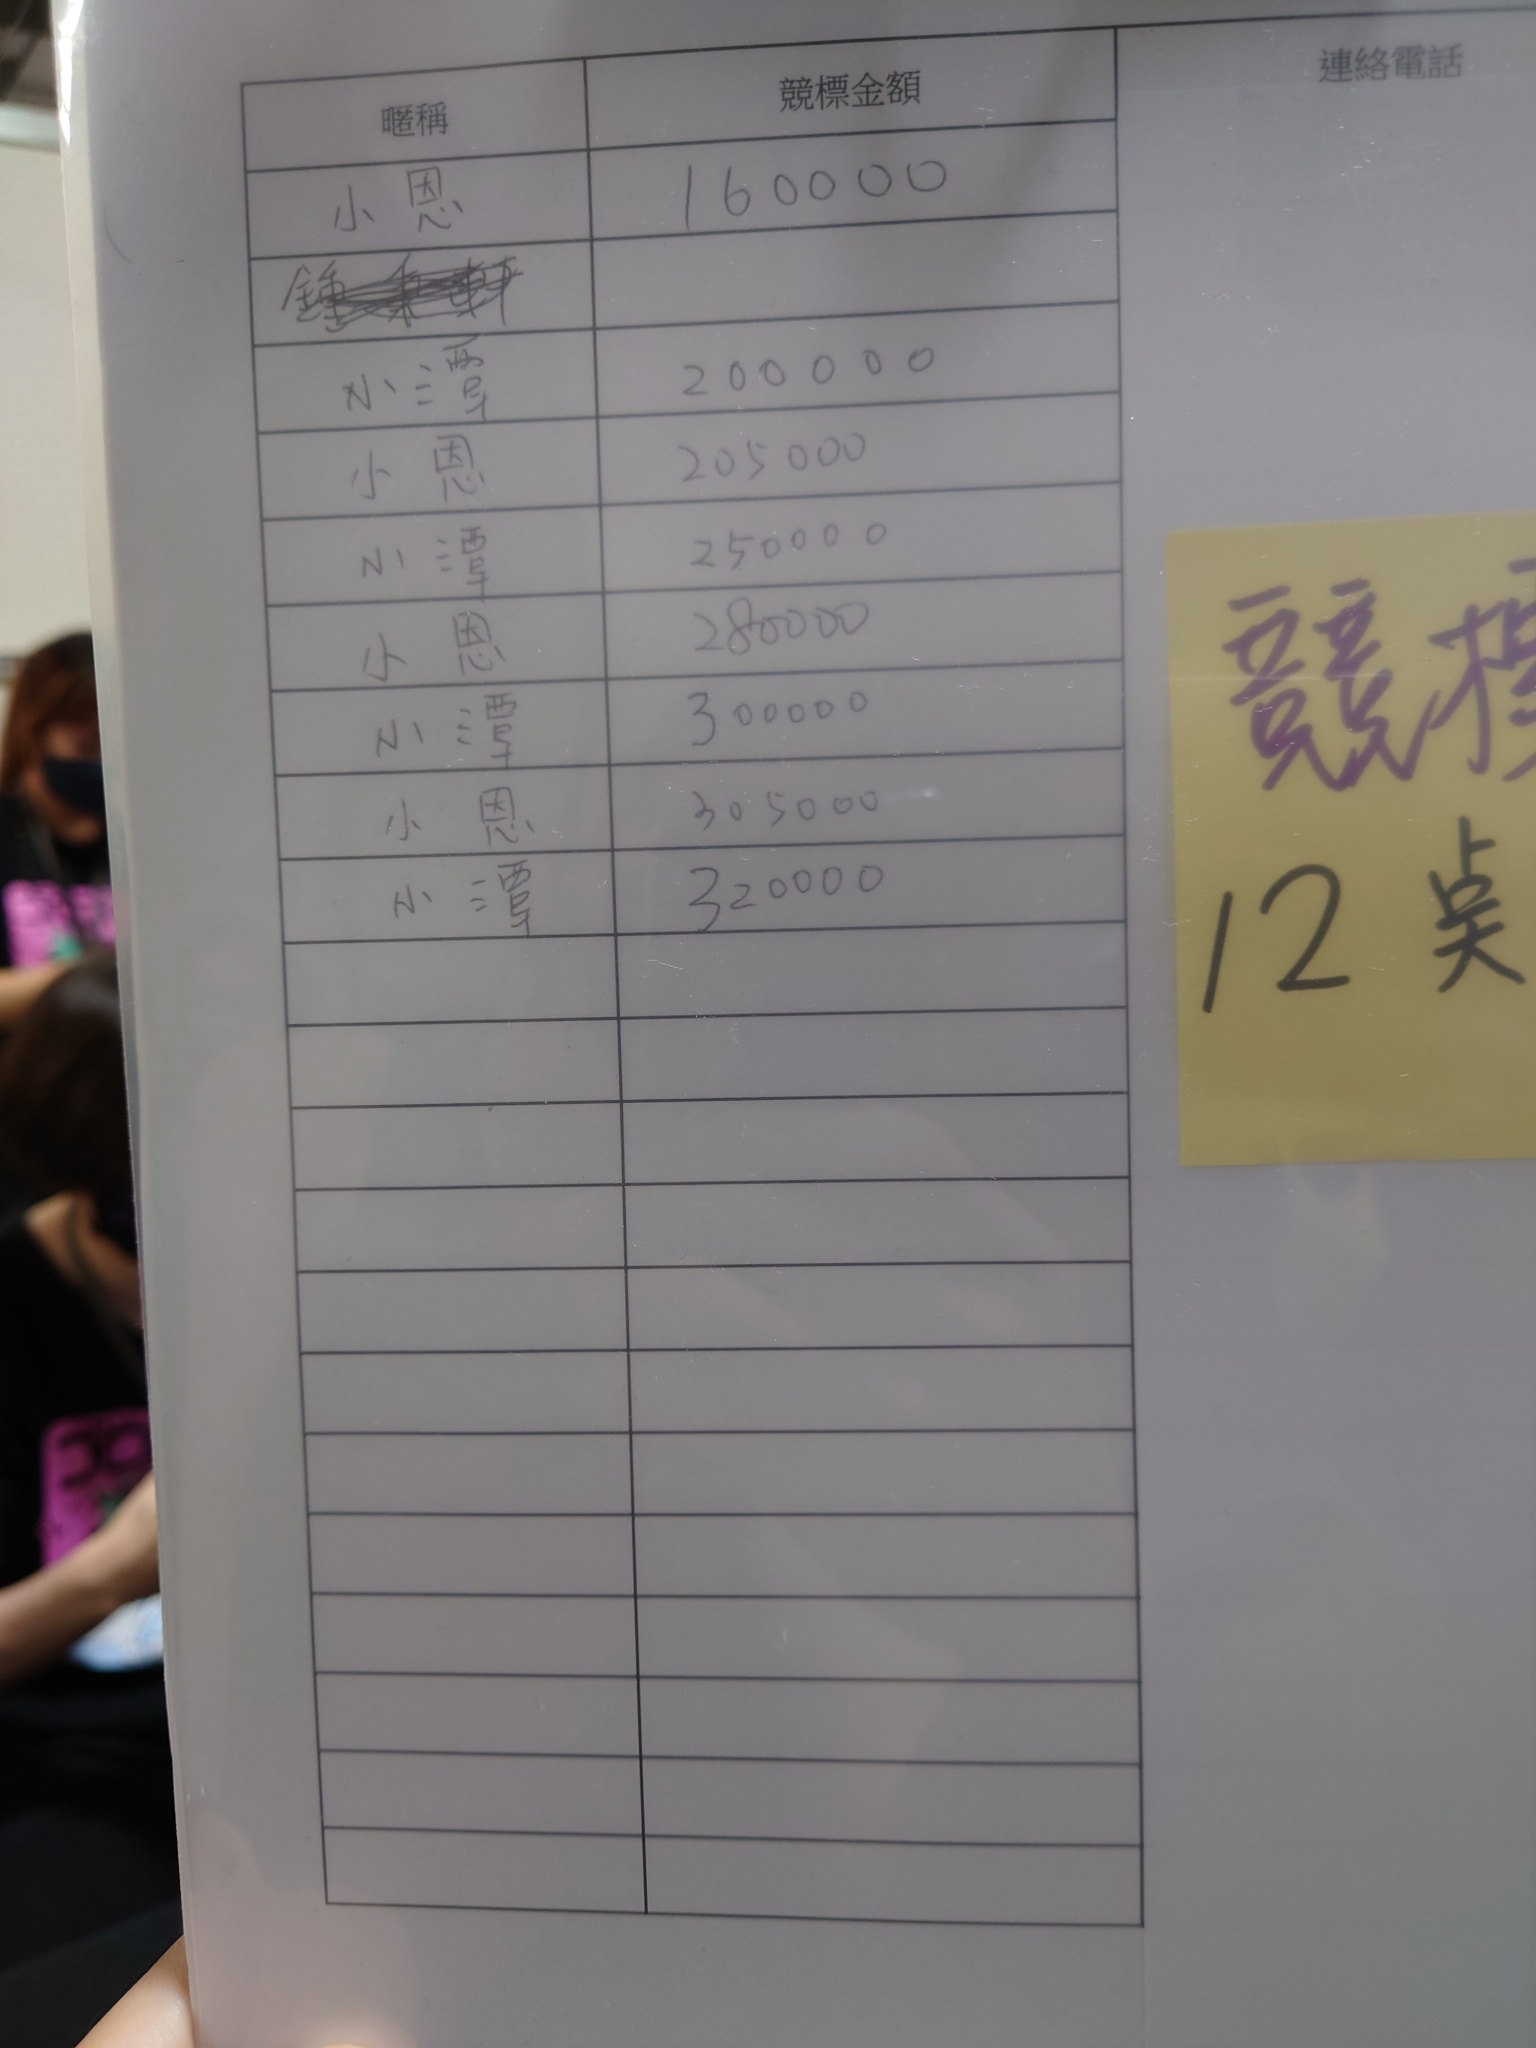 暱稱 競標金額 連絡電話
小恩 160000
小潭 200000
小恩 205000
小潭 250000
小恩 280000
小潭 300000
小恩 305000
小潭 320000
競標
12點